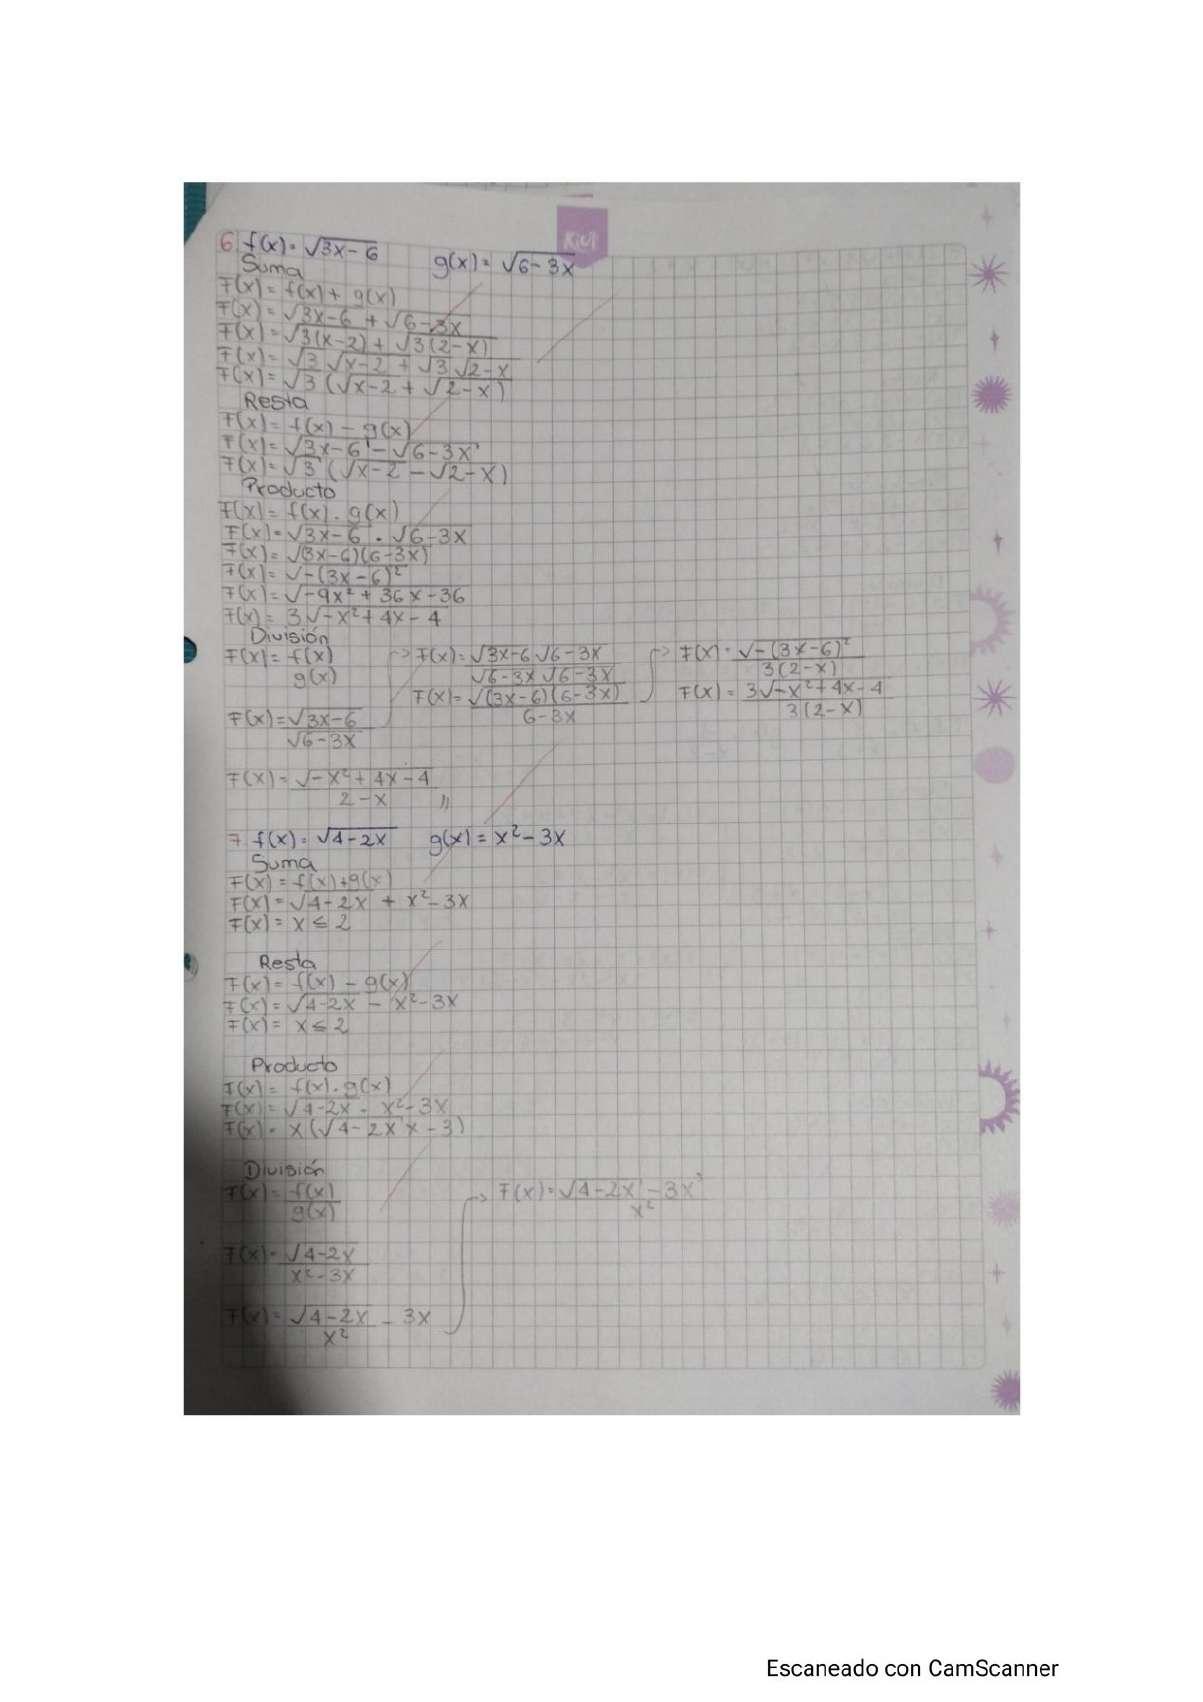 KiUt
6 f(x) = √3x-6   g(x) = √6-3x
Suma
F(x) = f(x) + g(x)
F(x) = √3x-6 + √6-3x
F(x) = √3(x-2) + √3(2-x)
F(x) = √3 √x-2 + √3 √2-x
F(x) = √3 (√x-2 + √2-x)
Resta
F(x) = f(x) - g(x)
F(x) = √3x-6 - √6-3x
F(x) = √3 (√x-2 - √2-x)
Producto
F(x) = f(x) . g(x)
F(x) = √3x-6 . √6-3x
F(x) = √(3x-6)(6-3x)
F(x) = √-(3x-6)²
F(x) = √-9x² + 36x - 36
F(x) = 3√-x² + 4x - 4
División
F(x) = f(x)
g(x)
F(x) = √3x-6
√6-3x
F(x) = √3x-6 √6-3x
√6-3x √6-3x
F(x) = √(3x-6)(6-3x)
6-3x
F(x) = √-(3x-6)²
3(2-x)
F(x) = 3√-x²+4x-4
3(2-x)
F(x) = √-x²+4x-4
2-x //
7 f(x) = √4-2x   g(x) = x²-3x
Suma
F(x) = f(x)+g(x)
F(x) = √4-2x + x²-3x
F(x) = x ≤ 2
Resta
F(x) = f(x) - g(x)
F(x) = √4-2x - x²-3x
F(x) = x ≤ 2
Producto
F(x) = f(x) . g(x)
F(x) = √4-2x . x²-3x
F(x) = x(√4-2x x-3)
División
F(x) = f(x)
g(x)
F(x) = √4-2x
x²-3x
F(x) = √4-2x - 3x
x²
F(x) = √4-2x - 3x³
x²
Escaneado con CamScanner